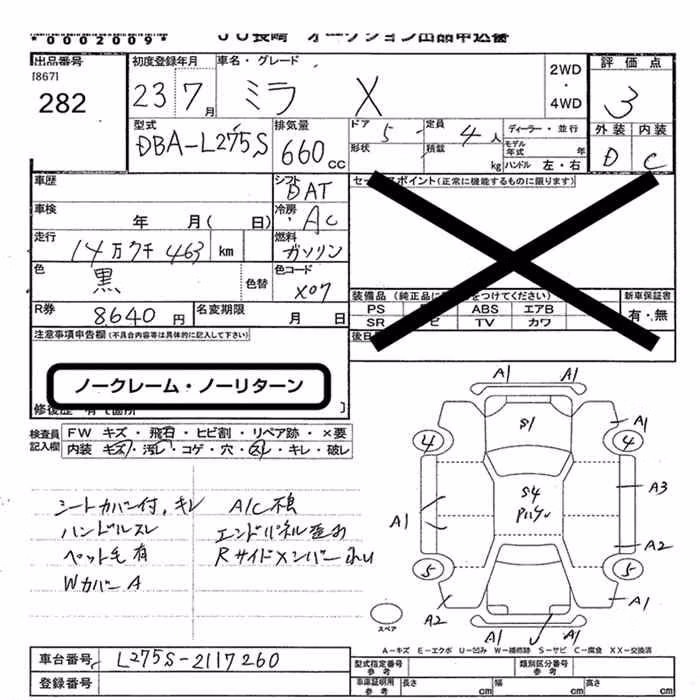 *0002009*
JU長崎 オークション出品申込書
出品番号
[867]
282
初度登録年月
23 7月
車名・グレード
ミラ X
2WD
・
4WD
評価点
3
外装 内装
D C
型式
DBA-L275S
排気量
660cc
ドア 5
定員 4人
ディーラー・並行
形状
積載 kg
モデル年式 年
ハンドル 左・右
車歴
シフト DAT
車検 年 月( 日)
冷房 AC
走行 14万7千463 km
燃料 ガソリン
色 黒
色替
色コード X07
R券 8640円
名変期限 月 日
セールスポイント(正常に機能するものに限ります)
装備品(純正品に をつけてください)
新車保証書
PS ABS エアB
有・無
SR TV カワ
後日
注意事項申告欄(不具合内容等は具体的に記入して下さい)
ノークレーム・ノーリターン
検査員記入欄
FW キズ・飛石・ヒビ割・リペア跡・×要
内装 キズ・汚レ・コゲ・穴・スレ・キレ・破レ
シートカバー付、キレ
ハンドルスレ
ペット毛有
Wカバー A
A/C不良
エンドパネル歪み
Rサイドメンバー
A1 A1
S1
A1
4 4
S4
A3
A1
A2
5 5
A2
A1
A1 U A1
スペア
A－キズ E－エクボ U－凹み W－補修跡 S－サビ C－腐食 XX－交換済
車台番号 L275S-2117260
登録番号
型式指定番号 参考
類別区分番号 参考
車庫証明用 参考
長さ cm
幅 cm
高さ cm